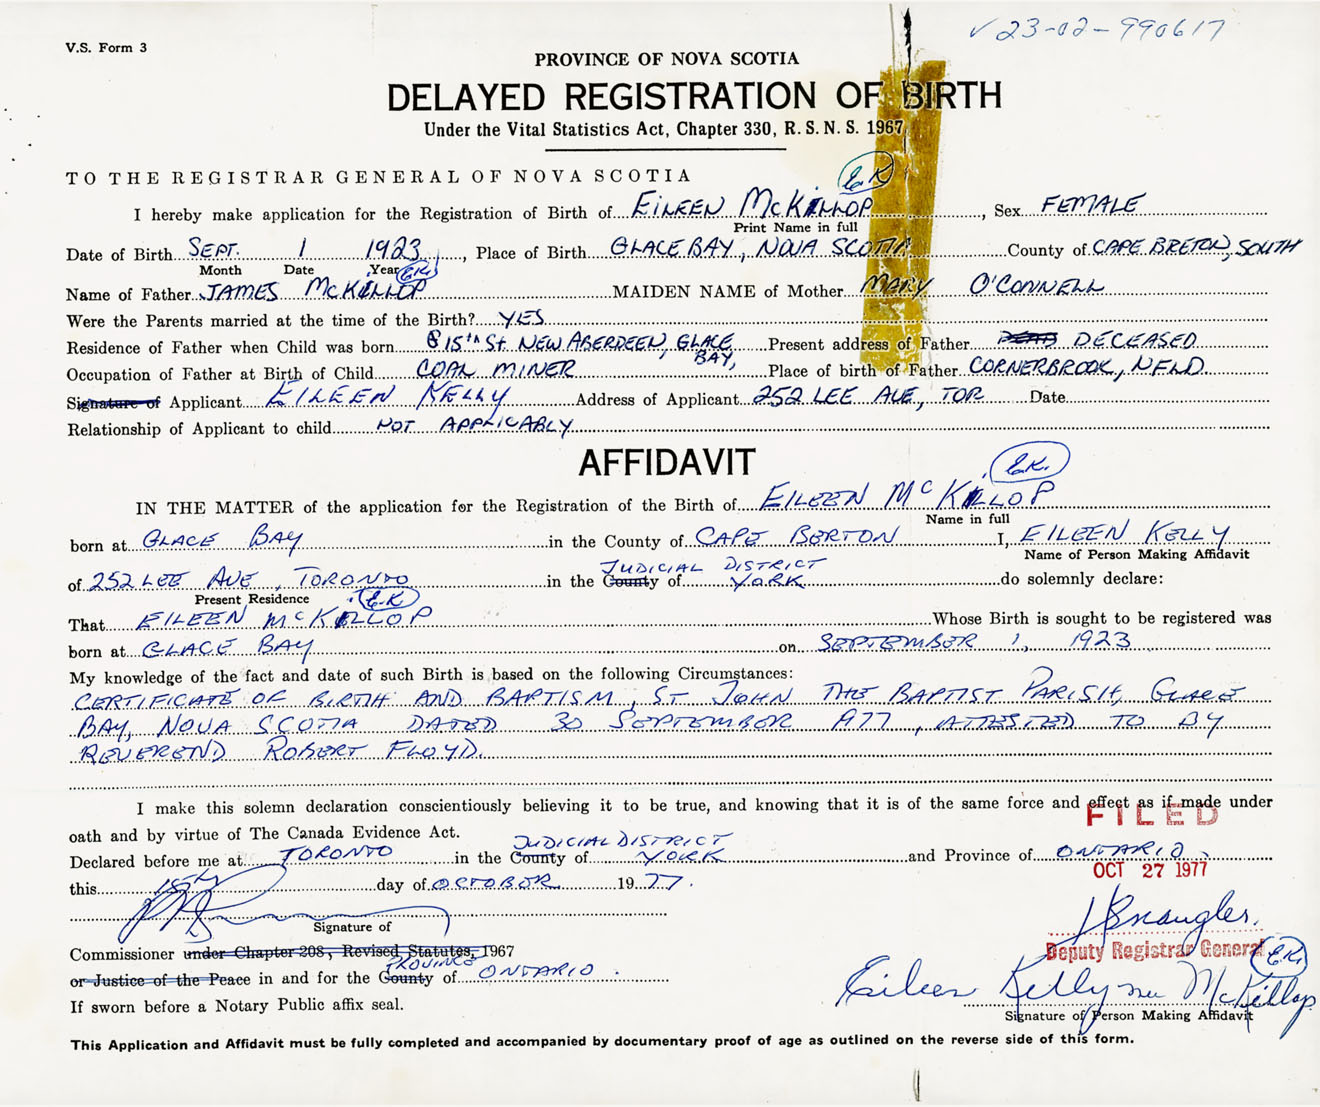 ✓ 23-02-990617
V.S. Form 3
PROVINCE OF NOVA SCOTIA
DELAYED REGISTRATION OF BIRTH
Under the Vital Statistics Act, Chapter 330, R. S. N. S. 1967
TO THE REGISTRAR GENERAL OF NOVA SCOTIA
E.K
I hereby make application for the Registration of Birth of EILEEN McKILLOP, Sex FEMALE
Print Name in full
Date of Birth SEPT. 1 1923, Place of Birth GLACE BAY, NOVA SCOTIA County of CAPE BRETON, SOUTH
Month Date Year E.K.
Name of Father JAMES McKILLOP MAIDEN NAME of Mother MARY O'CONNELL
Were the Parents married at the time of the Birth? YES
Residence of Father when Child was born 15th St NEW ABERDEEN, GLACE BAY, Present address of Father DECEASED
Occupation of Father at Birth of Child COAL MINER Place of birth of Father CORNERBROOK, NFLD.
Signature of Applicant EILEEN KELLY Address of Applicant 252 LEE AVE, TOR Date
Relationship of Applicant to child NOT APPLICABLY
AFFIDAVIT
E.K.
IN THE MATTER of the application for the Registration of the Birth of EILEEN McKILLOP
Name in full
born at GLACE BAY in the County of CAPE BERTON I, EILEEN KELLY
Name of Person Making Affidavit
JUDICIAL DISTRICT
of 252 LEE AVE, TORONTO in the County of YORK do solemnly declare:
Present Residence E.K
That EILEEN McKILLOP Whose Birth is sought to be registered was
born at GLACE BAY on SEPTEMBER 1, 1923
My knowledge of the fact and date of such Birth is based on the following Circumstances:
CERTIFICATE OF BIRTH AND BAPTISM, ST JOHN THE BAPTIST PARISH, GLACE
BAY, NOVA SCOTIA DATED 30 SEPTEMBER 1977, ATTESTED TO BY
REVEREND ROBERT FLOYD.
I make this solemn declaration conscientiously believing it to be true, and knowing that it is of the same force and effect as if made under
FILED
oath and by virtue of The Canada Evidence Act.
JUDICIAL DISTRICT
Declared before me at TORONTO in the County of YORK and Province of ONTARIO.
OCT 27 1977
this 18th day of OCTOBER 1977.
Signature of
Deputy Registrar General
Commissioner under Chapter 208, Revised Statutes, 1967
PROVINCE
or Justice of the Peace in and for the County of ONTARIO.
E.K.
Eileen Kelly nee McKillop
If sworn before a Notary Public affix seal.
Signature of Person Making Affidavit
This Application and Affidavit must be fully completed and accompanied by documentary proof of age as outlined on the reverse side of this form.